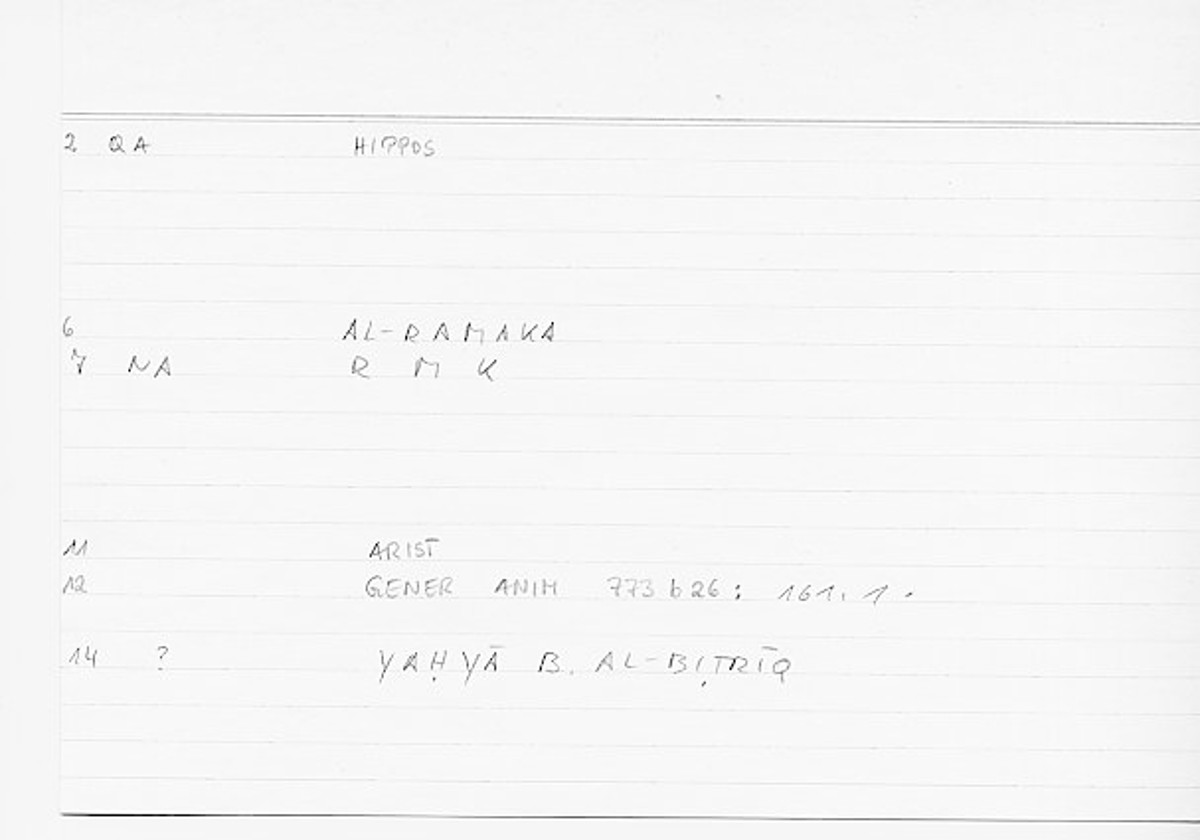 2 QA HIPPOS
6 AL-RAMAKA
7 NA R M K
11 ARIST
12 GENER ANIM 773 b 26 : 161. 1.
14 ? YAḤYĀ B. AL-BIṬRĪQ